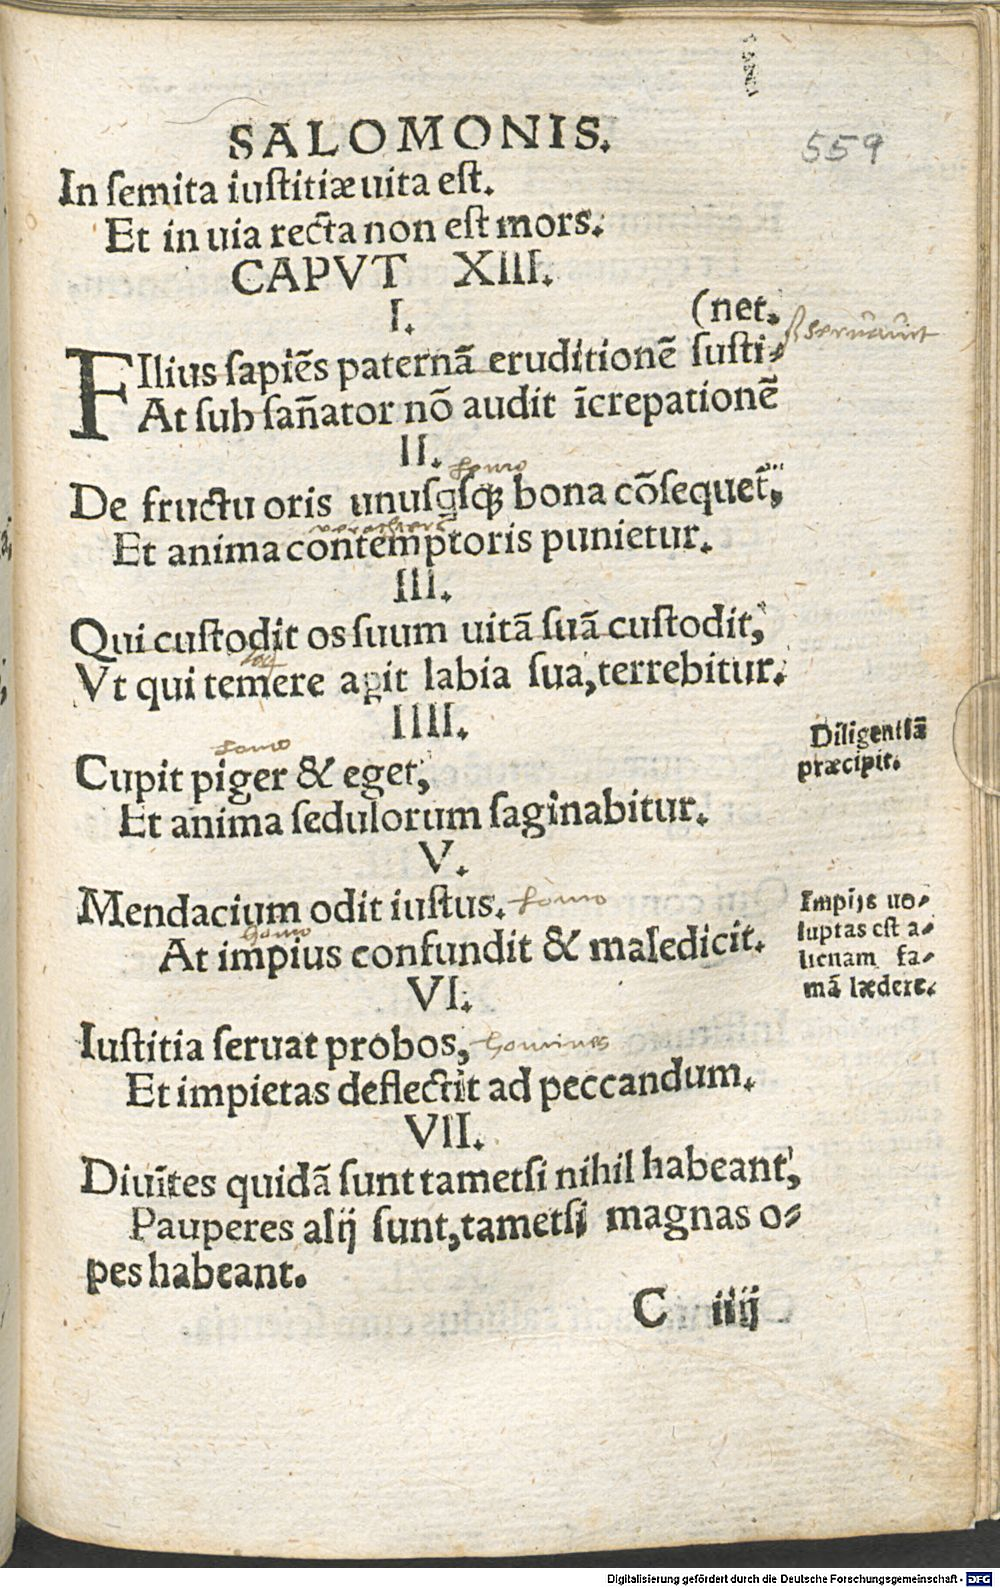 SALOMONIS.
559
In semita iustitiæ uita est.
Et in uia recta non est mors.
CAPVT XIII.
I.
(net.
FIlius sapiẽs paternã eruditionẽ susti-
seruauit
At subsañator nõ audit ĩcrepationẽ
II.
homo
De fructu oris unusqsqꝫ bona cõsequet̃,
Et anima contemptoris punietur.
III.
Qui custodit os suum uitã suã custodit,
Vt qui temere agit labia sua, terrebitur.
IIII.
homo
Cupit piger & eget,
Et anima sedulorum saginabitur.
Diligentiã
præcipit.
V.
Mendacium odit iustus. homo
homo
At impius confundit & maledicit.
Impijs uo-
luptas est a-
lienam fa-
mã lædere.
VI.
Iustitia seruat probos, homines
Et impietas deflectit ad peccandum.
VII.
Diuites quidã sunt tametsi nihil habeant,
Pauperes alij sunt, tametsi magnas o-
pes habeant.
C iiij
Digitalisierung gefördert durch die Deutsche Forschungsgemeinschaft - DFG